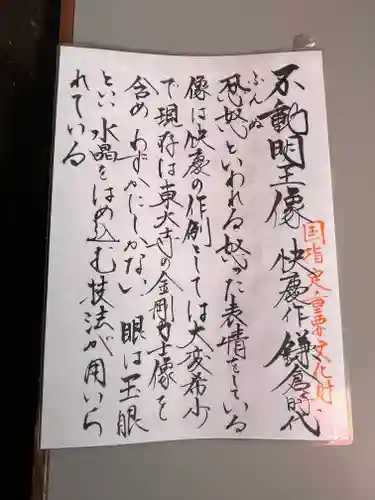 国指定・重要文化財
不動明王像 快慶作 鎌倉時代
ふんぬ
忿怒といわれる怒った表情をしている
像は快慶の作例としては大変希少
で現存は東大寺の金剛力士像を
含めわずかにしかない 眼は玉眼
といい水晶をはめ込む技法が用いら
れている